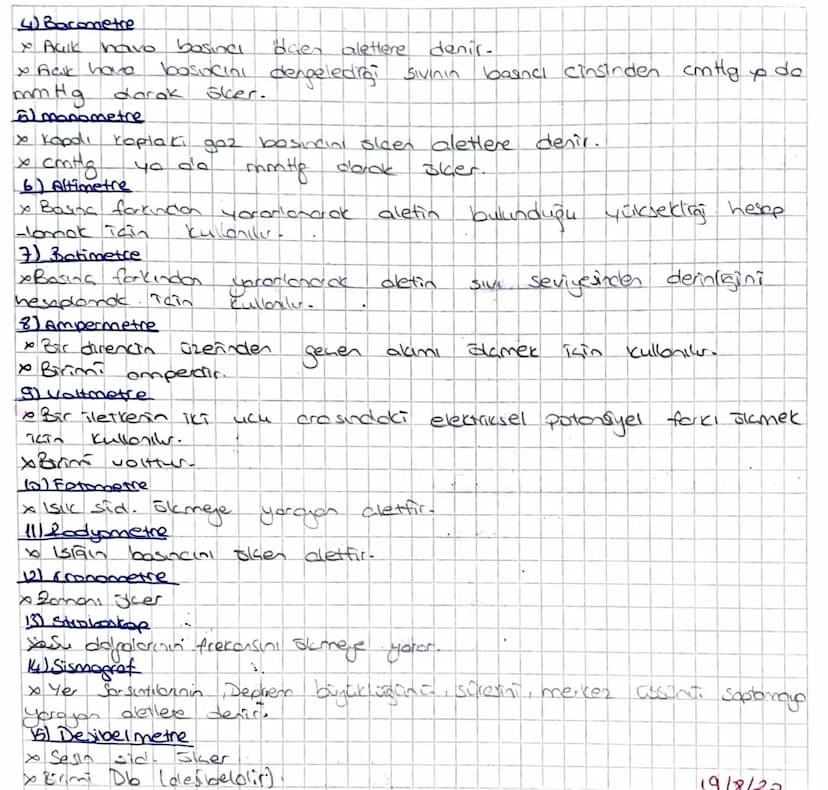 4) Barometre
x Açık hava basıncı ölçen aletlere denir.
x Açık hava basıncını dengelediği sıvının basıncı cinsinden cmHg ya da
mmHg olarak ölçer.
5) manometre
x Kapalı kaptaki gaz basıncını ölçen aletlere denir.
x cmHg ya da mmHg olarak ölçer.
6) Altimetre
x Basınç farkından yararlanarak aletin bulunduğu yüksekliği hesap
-lamak için kullanılır.
7) Batimetre
x Basınç farkından yararlanarak aletin sıvı seviyesinden derinliğini
hesaplamak için kullanılır.
8) Ampermetre
x Bir direncin üzerinden geçen akımı ölçmek için kullanılır.
x Birimi amperdir.
9) Voltmetre
x Bir iletkenin iki ucu arasındaki elektriksel potansiyel farkı ölçmek
için kullanılır.
x Birimi volttur.
10) Fotometre
x Işık şid. ölçmeye yarayan alettir.
11) Radyometre
x Işığın basıncını ölçen alettir.
12) Kronometre
x Zamanı ölçer
13) Stroboskop
x Su dalgalarının frekansını ölçmeye yarar.
14) Sismograf
x Yer sarsıntılarının, Deprem büyüklüğünü, süresini, merkez üssünü saptamaya
yarayan aletlere denir.
15) Desibelmetre
x Sesin şid. ölçer
x Birimi Db (desibeldir).